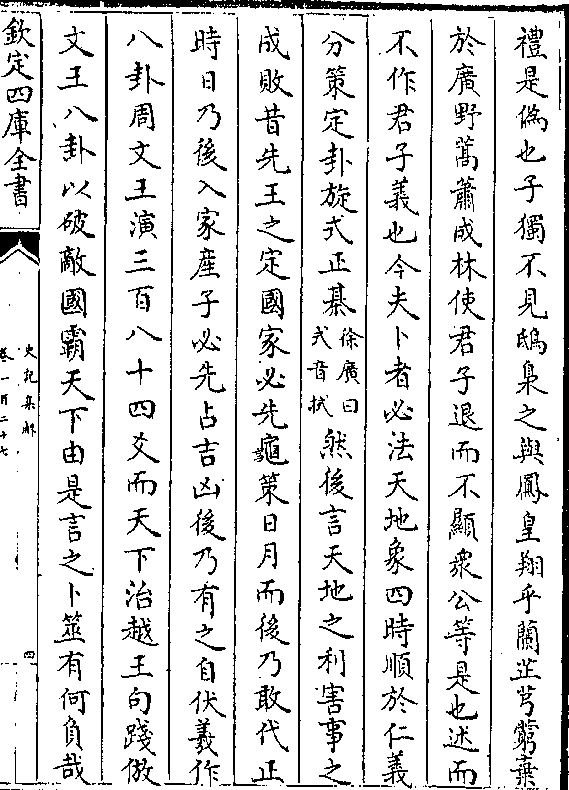 禮是偽也子獨不見鴟梟之與鳳皇翔乎蘭芷芎藭棄
於廣野蒿蕭成林使君子退而不顯衆公等是也述而
不作君子義也今夫卜者必法天地象四時順於仁義
分策定卦旋式正棊徐廣曰式音拭然後言天地之利害事之
成敗昔先王之定國家必先龜策日月而後乃敢代正
時日乃後入家産子必先占吉凶後乃有之自伏羲作
八卦周文王演三百八十四爻而天下治越王句踐倣
文王八卦以破敵國霸天下由是言之卜筮有何負哉
欽定四庫全書
史記集解
卷一百二十七
四